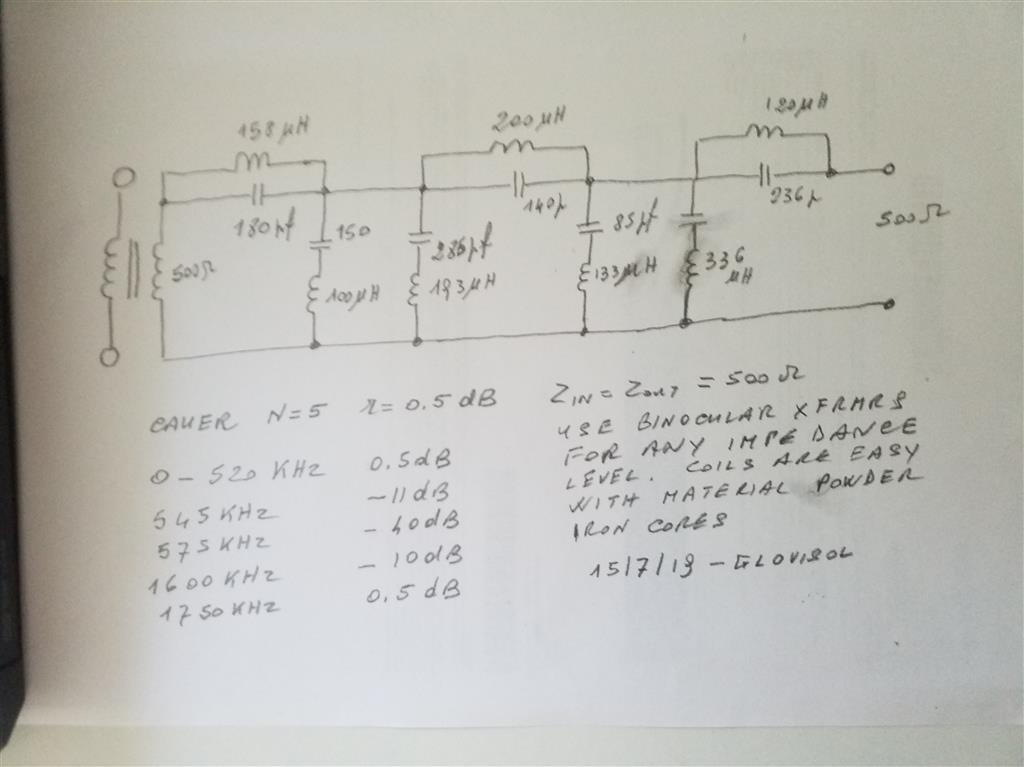 158 µH
200 µH
120 µH
180 pf
150
100 µH
286 pf
193 µH
140 p
85 pf
133 µH
336
µH
236 p
500 Ω
500 Ω
CAUER N=5 r=0.5 dB
0 – 520 KHz 0.5 dB
545 KHz –11 dB
575 KHz –40 dB
1600 KHz –10 dB
1750 KHz 0.5 dB
ZIN = ZOUT = 500 Ω
USE BINOCULAR XFRMRS
FOR ANY IMPEDANCE
LEVEL. COILS ARE EASY
WITH MATERIAL POWDER
IRON CORES
15/7/19 – GLOVISOL